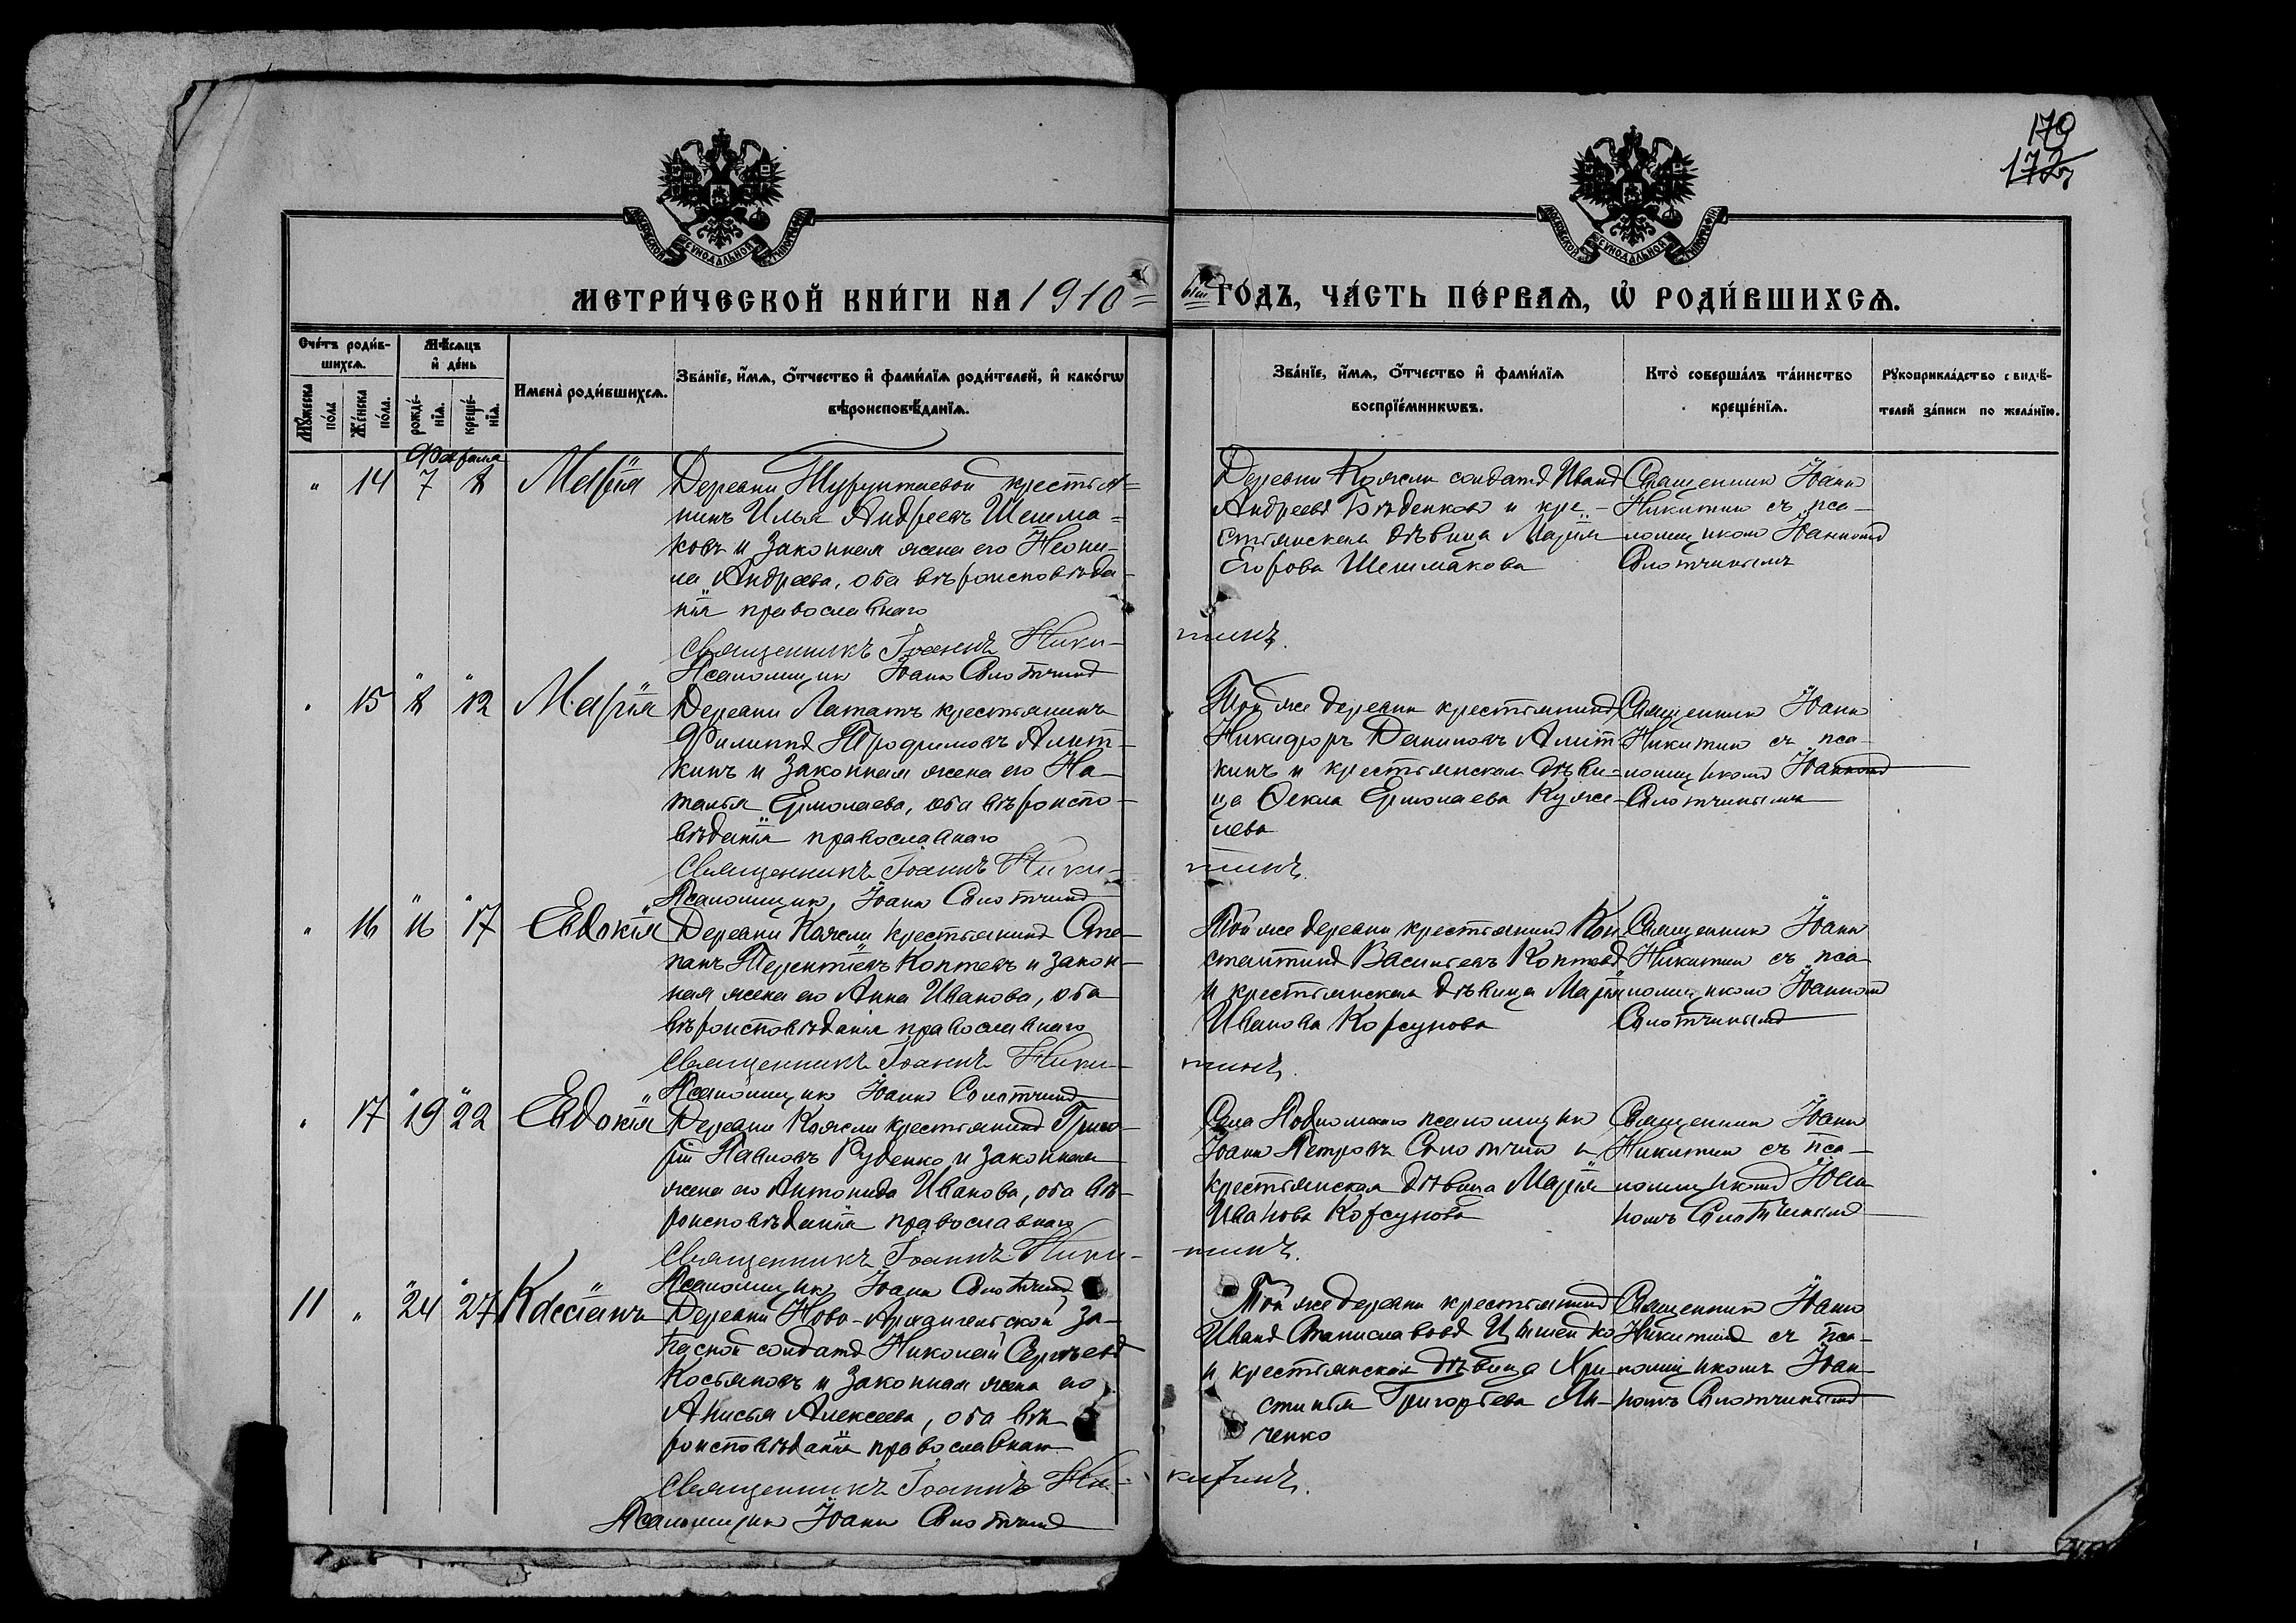 170
172
МОСКОВСКОЙ СѴНОДАЛЬНОЙ ТИПОГРАФІИ
МОСКОВСКОЙ СѴНОДАЛЬНОЙ ТИПОГРАФІИ
МЕТРИ́ЧЕСКОЙ КНИ́ГИ НА 1910 = ый ГО́ДЪ, ЧА́СТЬ ПЕ́РВАѦ, Ѡ҆ РОДИ́ВШИХСѦ.
Сче́тъ роди́в-
шихсѧ.
Мꙋ́жеска по́ла
Же́нска по́ла.
Мѣ́сѧцъ
и҆ де́нь
рожде́-
нїѧ.
креще́-
нїѧ.
Имена̀ роди́вшихсѧ.
Зва́нїе, и҆́мѧ, ѻ҆́тчество и҆ фами́лїѧ роди́телей, и҆ како́гѡ
вѣроисповѣ́данїѧ.
Зва́нїе, и҆́мѧ, ѻ҆́тчество и҆ фами́лїѧ
воспрїе́мникѡвъ.
Кто̀ соверша́лъ та́инство
креще́нїѧ.
Рꙋкоприкла́дство свидѣ́-
телей за́писи по жела́нїю.
Февраля
" 14 7 8 Марія
Деревни Турунтаевой крестья=
нинъ Илья Андреевъ Шешма=
ковъ и законная жена его Неони-
ла Андреева, оба вѣроисповѣда-
нія православнаго
Священникъ Іоаннъ Ники-
тинъ.
Псаломщикъ Іоаннъ Слотчинъ
Деревни Кожли солдатъ Иванъ
Андреевъ Бѣденковъ и кре-
стьянская дѣвица Марія
Егорова Шешмакова
Священникъ Іоаннъ
Никитинъ съ пса-
ломщикомъ Іоанномъ
Слотчинымъ
" 15 " 8 " 12 Марія
Деревни Лататъ крестьянинъ
Филиппъ Трофимовъ Алит-
кинъ и законная жена его На-
талья Ермолаева, оба вѣроиспо-
вѣданія православнаго
Священникъ Іоаннъ Ники-
тинъ.
Псаломщикъ Іоаннъ Слотчинъ
Той же деревни крестьянинъ
Никифоръ Даниловъ Алит
кинъ и крестьянская дѣви-
ца Ѳекла Ермолаева Куже-
лева
Священникъ Іоаннъ
Никитинъ съ пса-
ломщикомъ Іоанномъ
Слотчинымъ
" 16 " 16 " 17 Евдокія
Деревни Кожли крестьянинъ Сте-
панъ Терентіевъ Коптевъ и закон-
ная жена его Анна Иванова, оба
вѣроисповѣданія православнаго
Священникъ Іоаннъ Ники-
тинъ.
Псаломщикъ Іоаннъ Слотчинъ
Той же деревни крестьянинъ Кон-
стантинъ Васильевъ Коптевъ
и крестьянская дѣвица Марія
Иванова Корсунова
Священникъ Іоаннъ
Никитинъ съ пса-
ломщикомъ Іоанномъ
Слотчинымъ
" 17 " 19 " 22 Евдокія
Деревни Кожли крестьянинъ Григо-
рій Павловъ Руденко и законная
жена его Антонида Иванова, оба вѣ-
роисповѣданія православнаго
Священникъ Іоаннъ Ники-
тинъ.
Псаломщикъ Іоаннъ Слотчинъ
Села псаломщикъ
Іоаннъ Петровъ Слотчинъ и
крестьянская дѣвица Марія
Иванова Корсунова
Священникъ Іоаннъ
Никитинъ съ пса-
ломщикомъ Іоан
номъ Слотчинымъ
11 " " 24 " 27 Кассіанъ
Деревни Ново-Архангельской за-
пасной солдатъ Николай Сергѣевъ
Костяновъ и законная жена его
Анисья Алексеева, оба вѣ-
роисповѣданія православнаго
Священникъ Іоаннъ Ни-
китинъ.
Псаломщикъ Іоаннъ Слотчинъ
Той же деревни крестьянинъ
Иванъ Станиславовъ
и крестьянская дѣвица Хри
стинья Григорьева Ли-
ченко
Священникъ Іоаннъ
Никитинъ съ пса-
ломщикомъ Іоан-
номъ Слотчинымъ